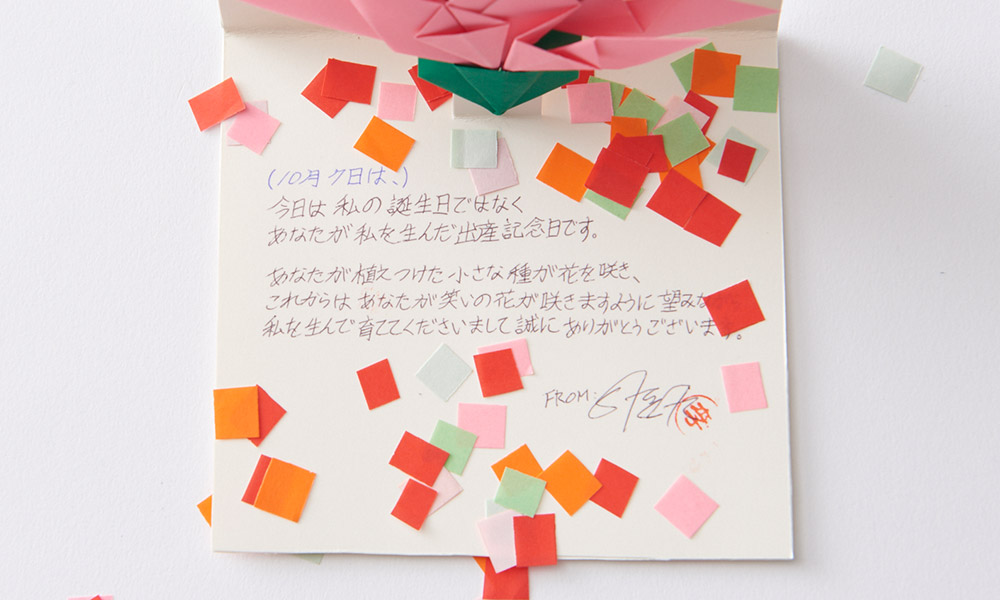 (10月7日は、)
今日は私の誕生日ではなく
あなたが私を生んだ出産記念日です。
あなたが植えつけた小さな種が花を咲き、
これからはあなたが笑いの花が咲きますように望みな
私を生んで育ててくださいまして誠にありがとうございます。
FROM: